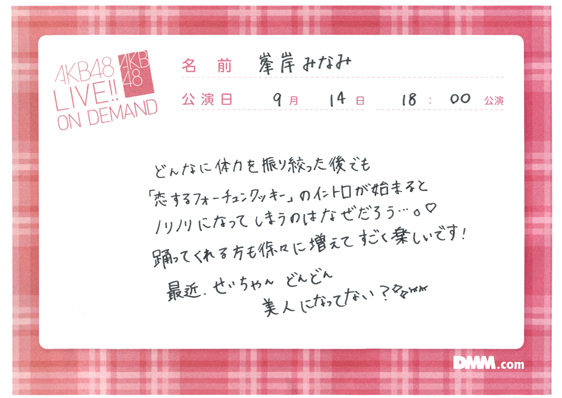 AKB48
LIVE!!
ON DEMAND
AKB
48
名前 峯岸みなみ
公演日 9月 14日 18:00 公演
どんなに体力を振り絞った後でも
「恋するフォーチュンクッキー」のイントロが始まると
ノリノリになってしまうのはなぜだろう…。♡
踊ってくれる方も徐々に増えてすごく楽しいです!
最近、せいちゃん どんどん
美人になってない?☆☆ww
DMM.com